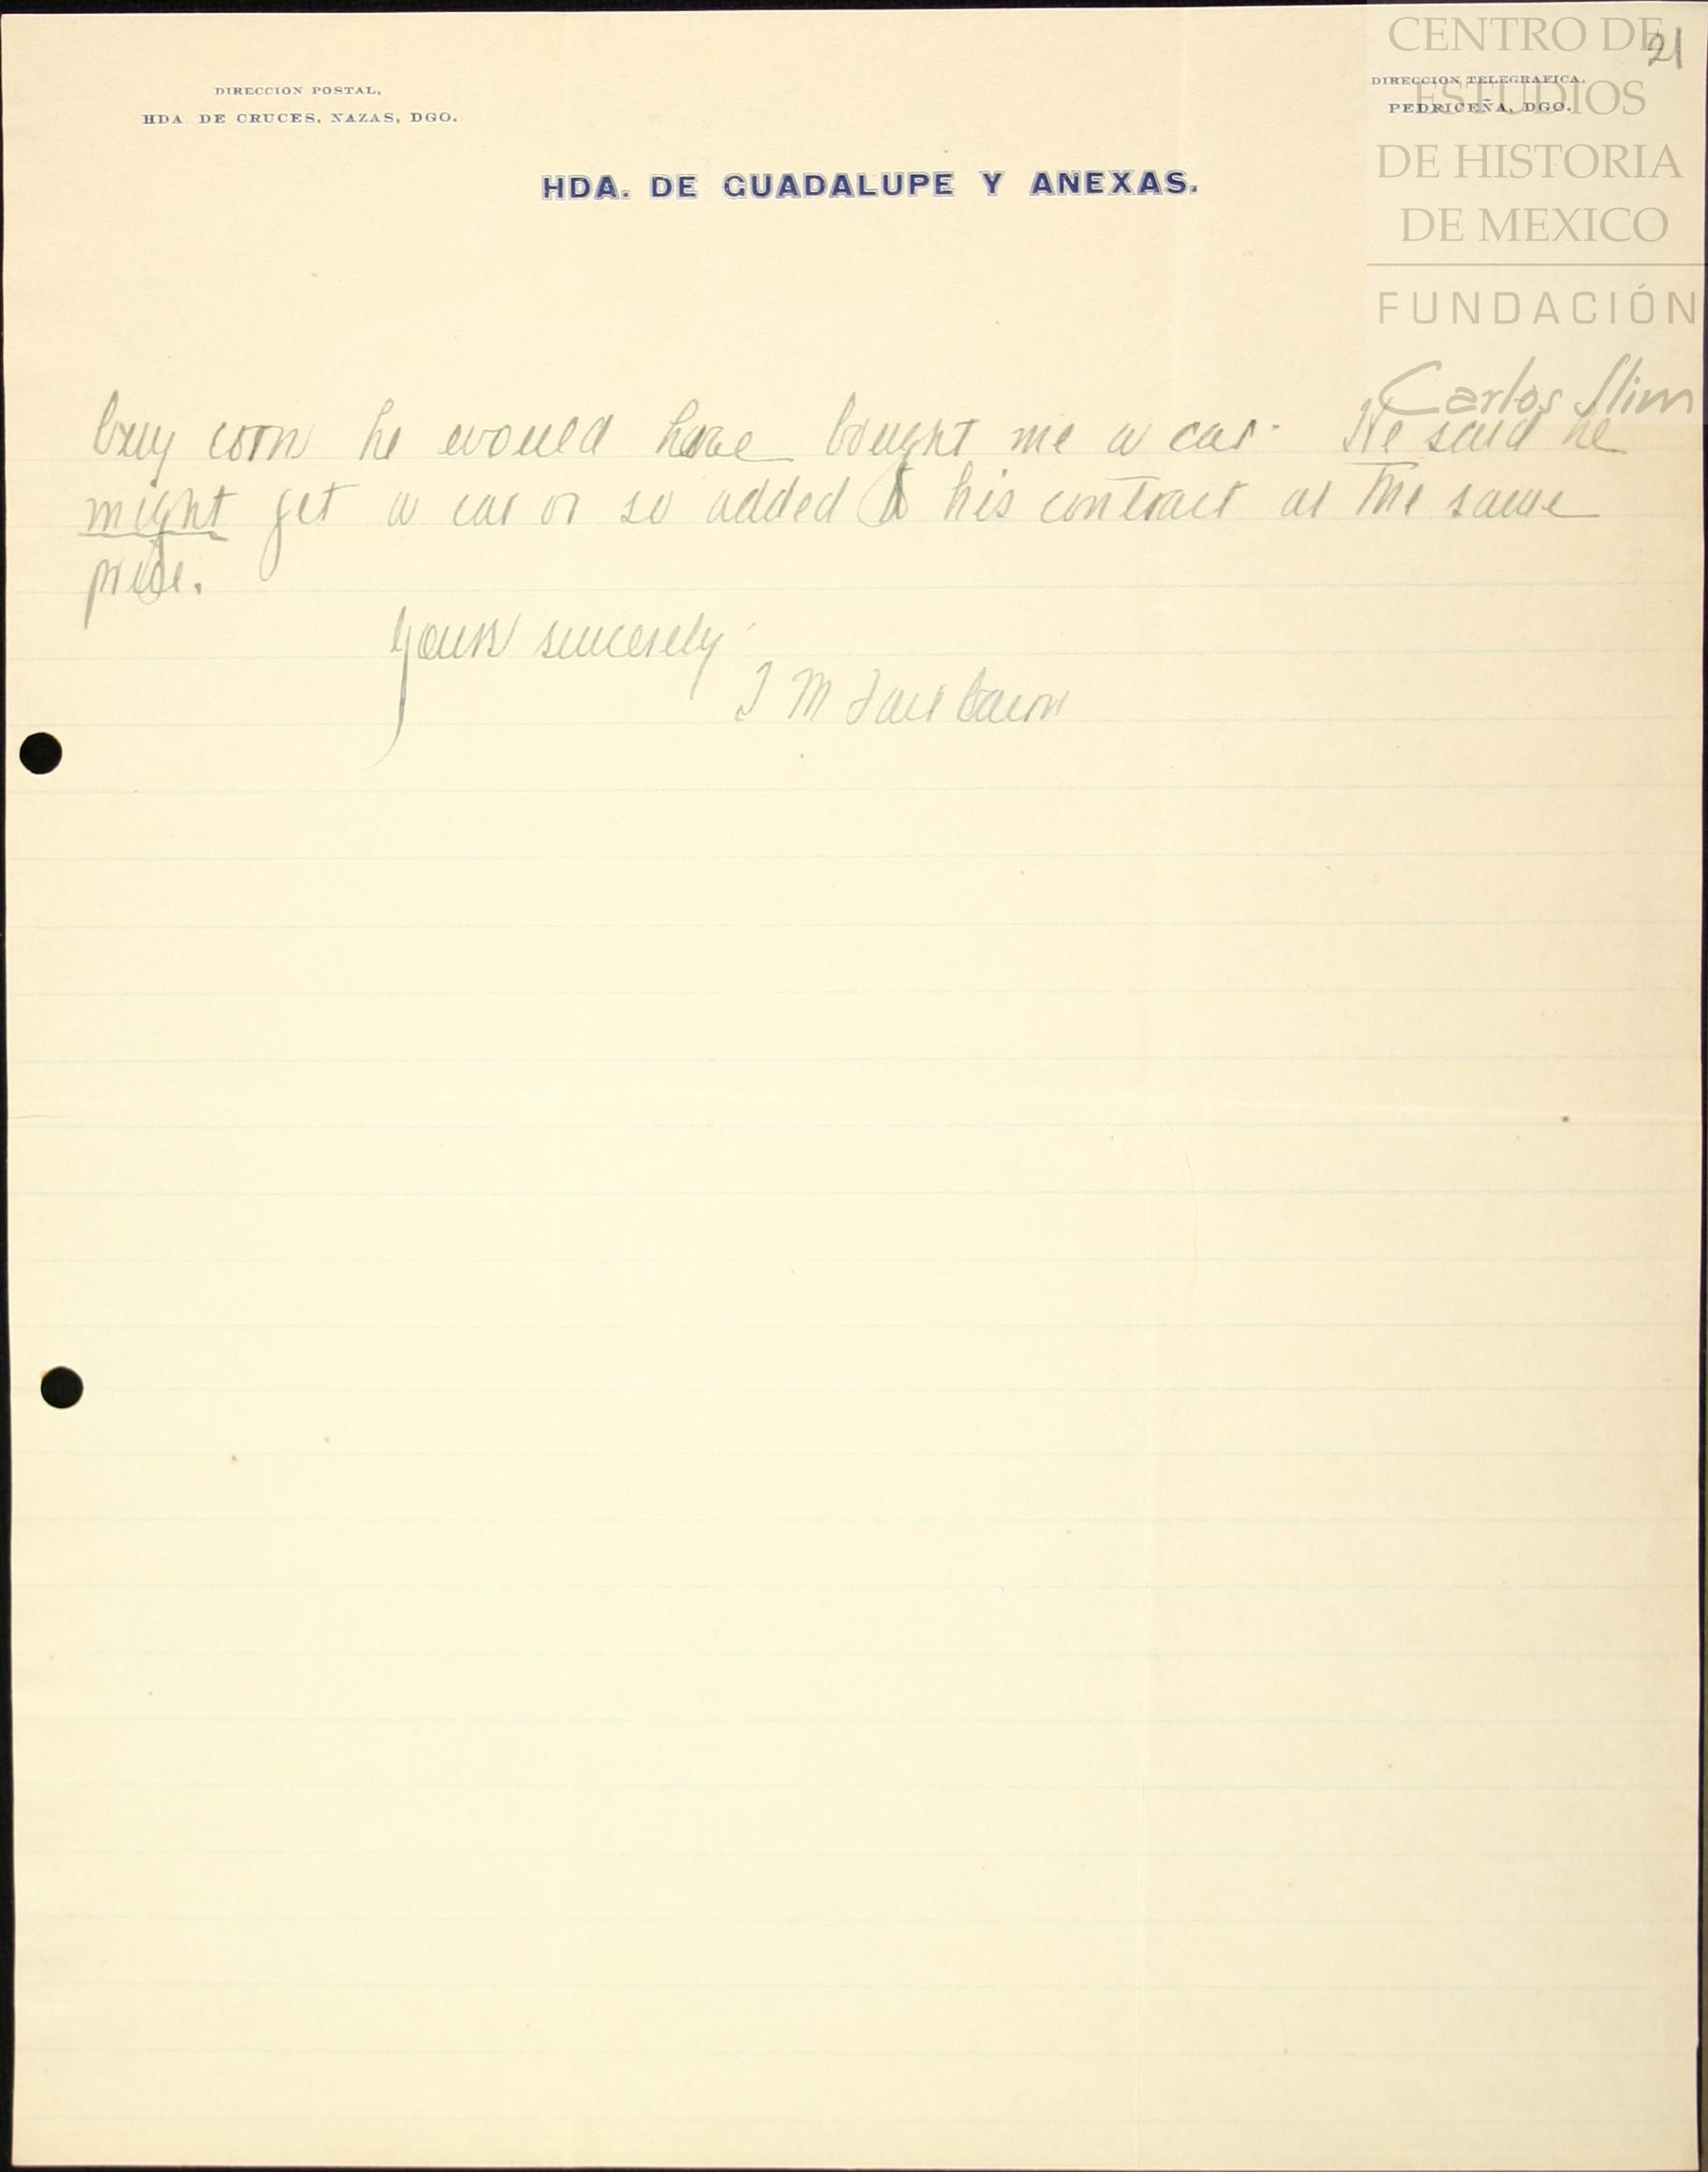 21
DIRECCION POSTAL,
HDA. DE CRUCES, NAZAS, DGO.
DIRECCION TELEGRAFICA.
PEDRICEÑA, DGO.
CENTRO DE
ESTUDIOS
DE HISTORIA
DE MEXICO
FUNDACIÓN
Carlos Slim
HDA. DE GUADALUPE Y ANEXAS.
buy corn he would have bought me a car. He said he
might get a car or so added to his contract at the same
price.
Yours sincerely
J M Fairbairn